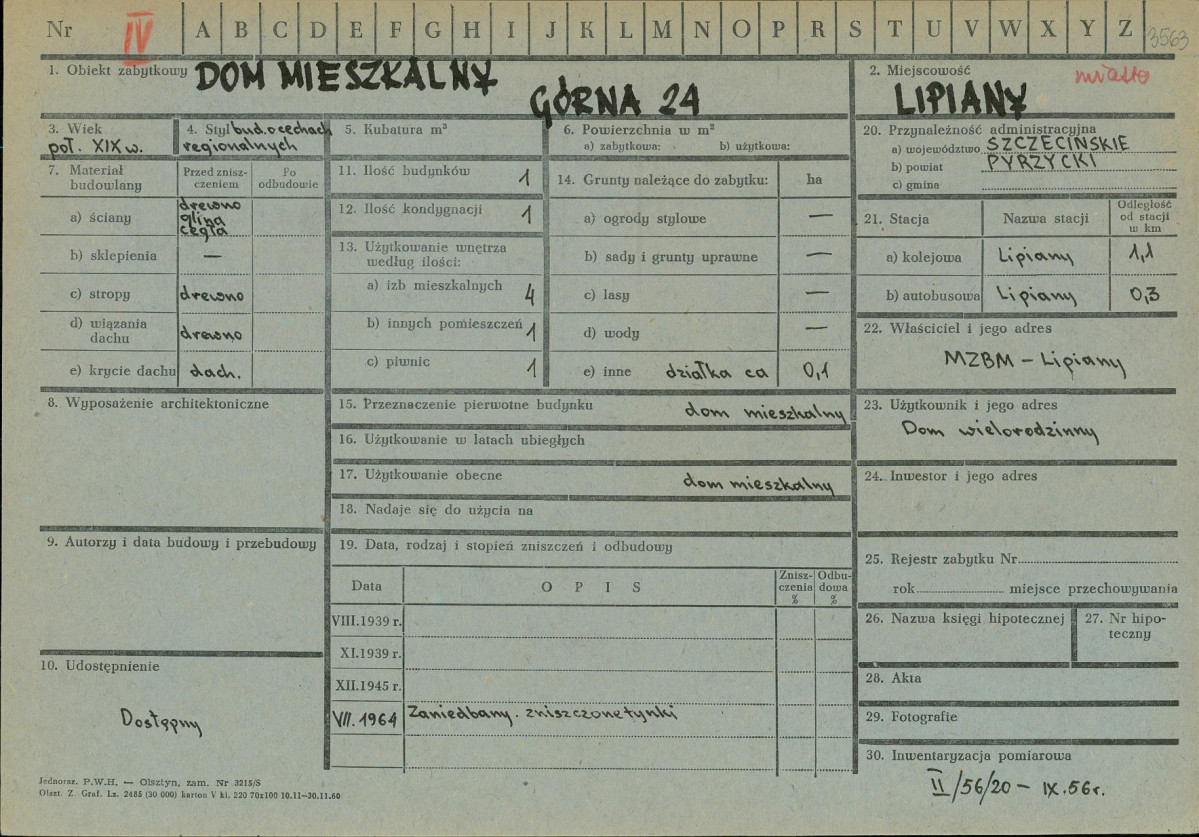 Nr IV A B C D E F G H I J K L M N O P R S T U V W X Y Z 3563
1. Obiekt zabytkowy DOM MIESZKALNY
GÓRNA 24
2. Miejscowość miasto
LIPIANY
3. Wiek
poł. XIX w.
4. Styl bud. o cechach
regionalnych
5. Kubatura m³
6. Powierzchnia w m²
a) zabytkowa: b) użytkowa:
7. Materiał budowlany
Przed znisz-
czeniem
Po
odbudowie
a) ściany drewno
glina
cegła
b) sklepienia —
c) stropy drewno
d) wiązania
dachu drewno
e) krycie dachu dach.
8. Wyposażenie architektoniczne
9. Autorzy i data budowy i przebudowy
10. Udostępnienie
Dostępny
11. Ilość budynków 1
12. Ilość kondygnacji 1
13. Użytkowanie wnętrza
według ilości:
a) izb mieszkalnych 4
b) innych pomieszczeń 1
c) piwnic 1
14. Grunty należące do zabytku: ha
a) ogrody stylowe —
b) sady i grunty uprawne —
c) lasy —
d) wody —
e) inne działka ca 0,1
15. Przeznaczenie pierwotne budynku dom mieszkalny
16. Użytkowanie w latach ubiegłych
17. Użytkowanie obecne dom mieszkalny
18. Nadaje się do użycia na
19. Data, rodzaj i stopień zniszczeń i odbudowy
Data OPIS
Znisz-
czenia
%
Odbu-
dowa
%
VIII.1939 r.
XI.1939 r.
XII.1945 r.
VII.1964 Zaniedbany. zniszczone tynki
20. Przynależność administracyjna
a) województwo SZCZECIŃSKIE
b) powiat PYRZYCKI
c) gmina
21. Stacja Nazwa stacji
Odległość
od stacji
w km
a) kolejowa Lipiany 1,1
b) autobusowa Lipiany 0,3
22. Właściciel i jego adres
MZBM – Lipiany
23. Użytkownik i jego adres
Dom wielorodzinny
24. Inwestor i jego adres
25. Rejestr zabytku Nr
rok miejsce przechowywania
26. Nazwa księgi hipotecznej
27. Nr hipo-
teczny
28. Akta
29. Fotografie
30. Inwentaryzacja pomiarowa
II/56/20 – IX.56r.
Jednoraz. P.W.H. — Olsztyn, zam. Nr 3215/S
Olszt. Z. Graf. Lz. 2485 (30 000) karton V kl. 220 70x100 10.11—30.11.60